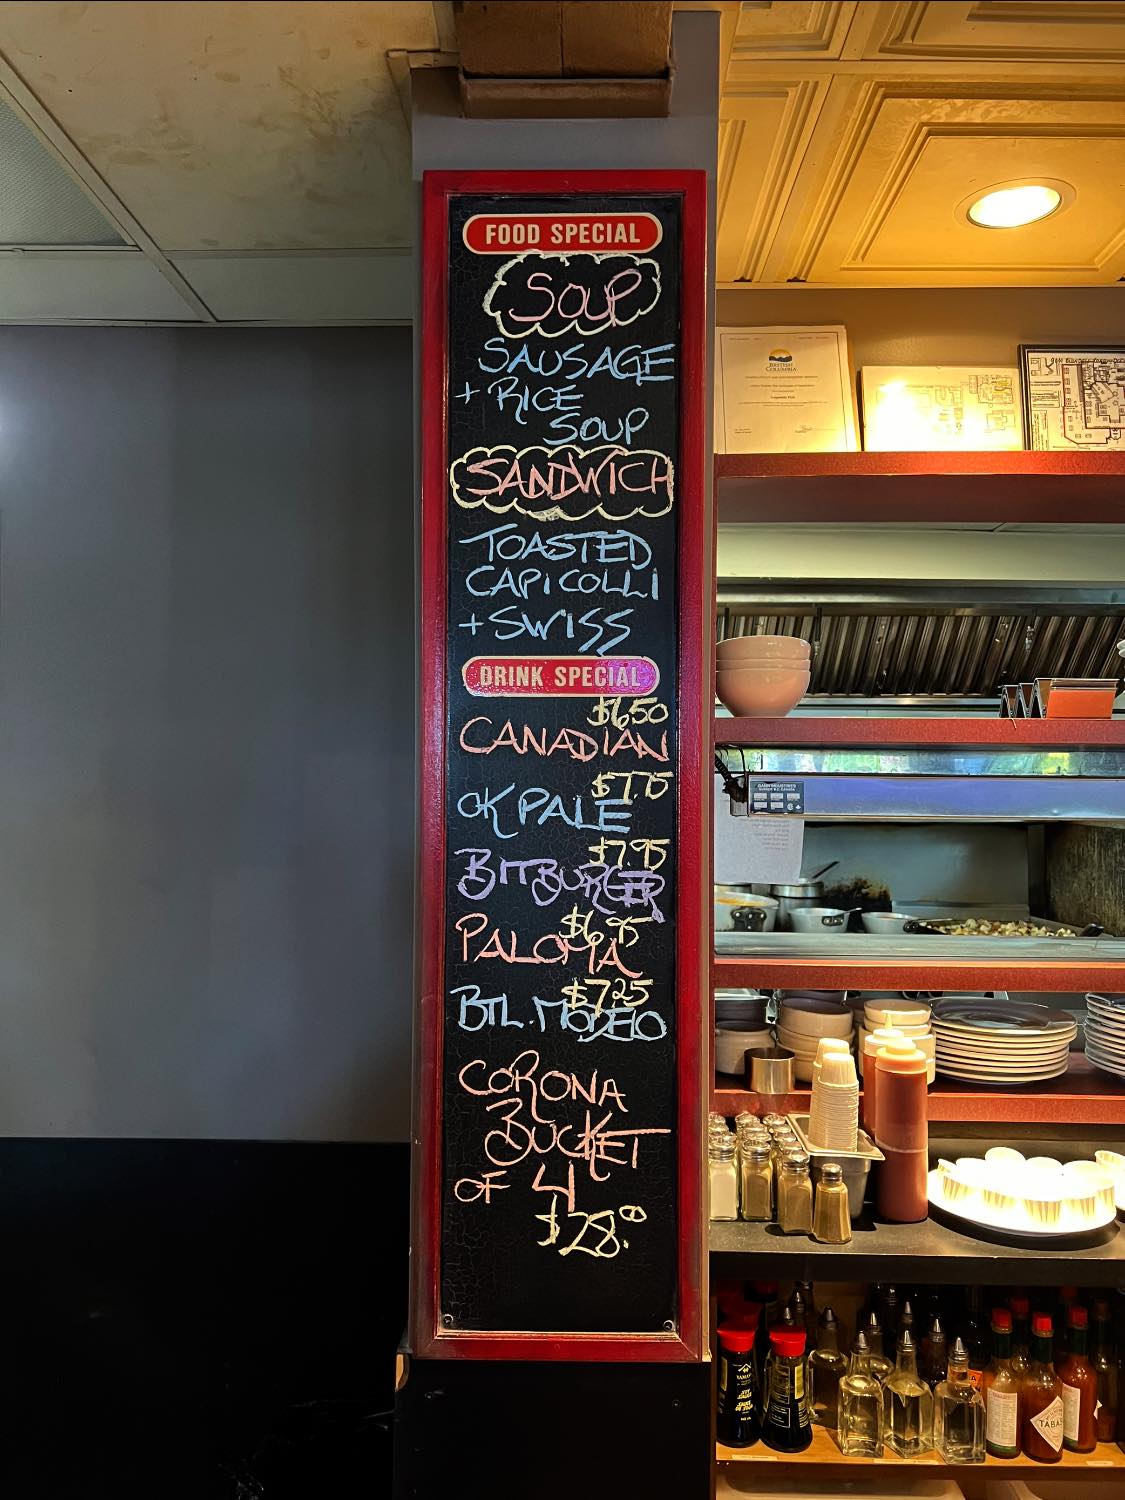 FOOD SPECIAL
SOUP
SAUSAGE
+ RICE
SOUP
SANDWICH
TOASTED
CAPICOLLI
+ SWISS
DRINK SPECIAL
$6.50
CANADIAN
$7.75
OK PALE
$7.95
BITBURGER
$6.95
PALOMA
$7.25
BTL. MODELO
CORONA
BUCKET
OF 4
$28.00
BRITISH
COLUMBIA
TABASCO